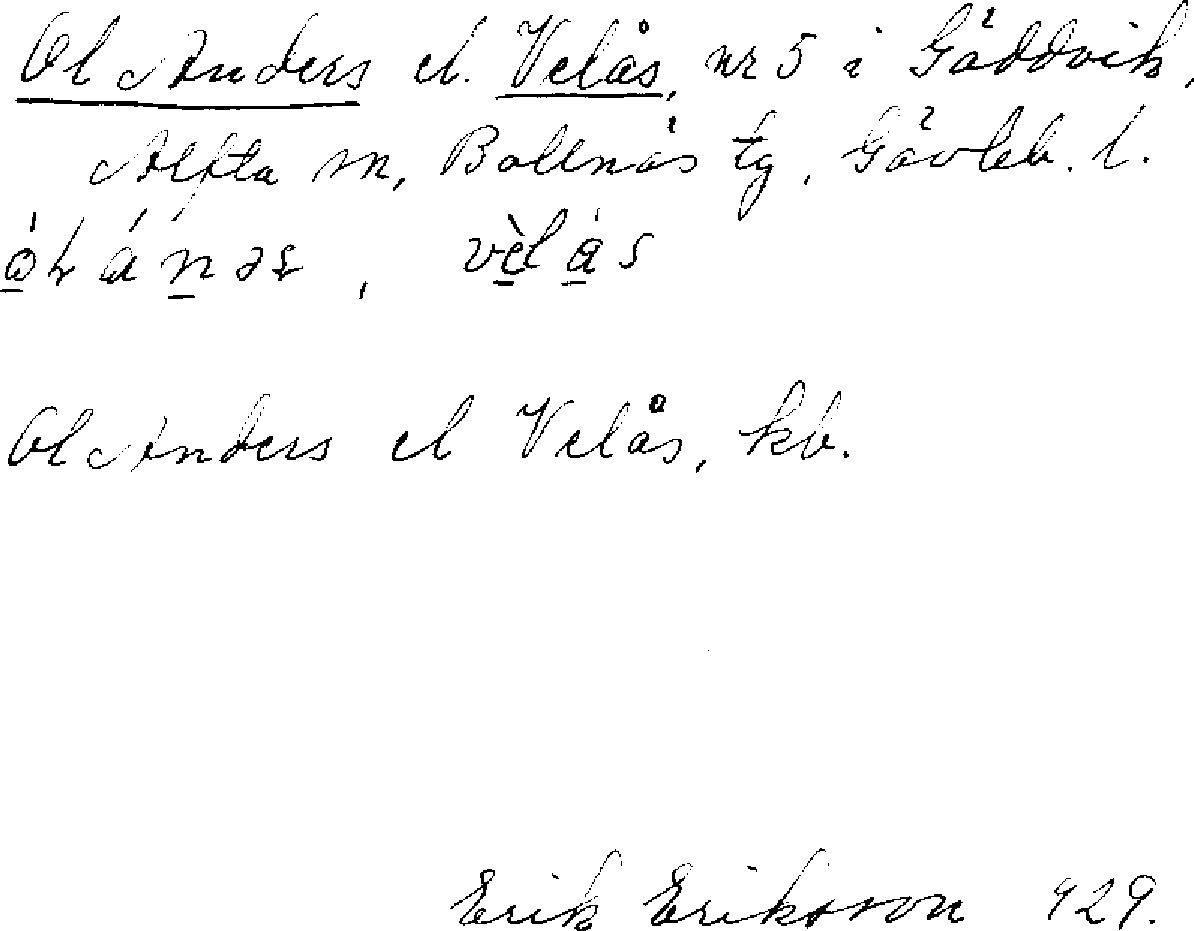 Ol Anders el. Velås, nr 5 i Gäddvik,
Alfta sn, Bollnäs tg, Gävleb. l.
vèlås
Ol Anders el Velås, kb.
Erik Eriksson 929.